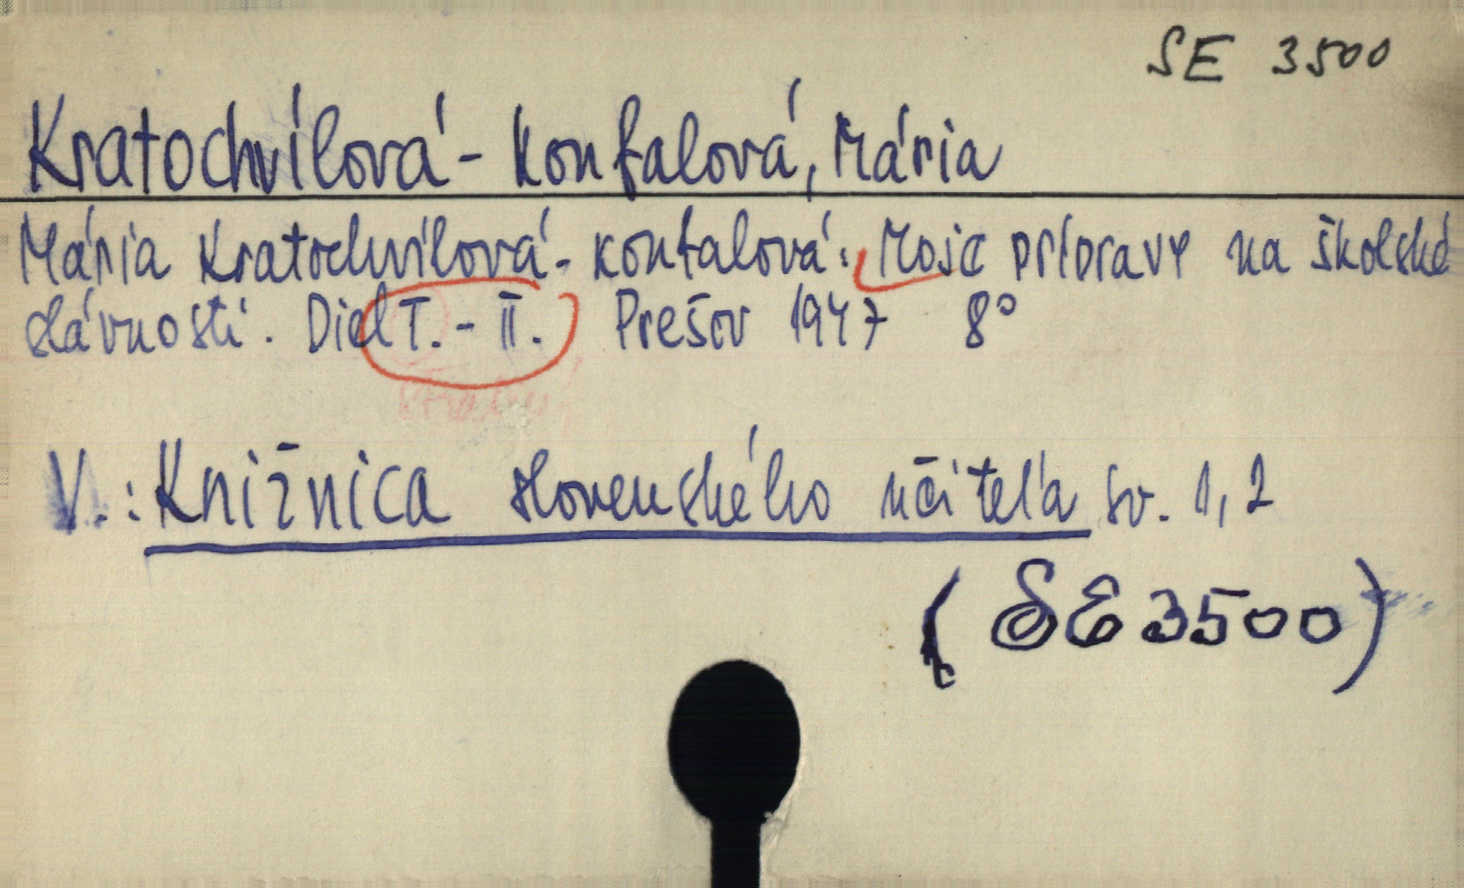 SE 3500
Kratochvílová - Konfalová, Mária
Mária Kratochvílová - Konfalová: Moje prípravy na školské
slávnosti. Diel I. - II. Prešov 1947 8°
V.: Knižnica slovenského učiteľa sv. 1, 2
(SE 3500)